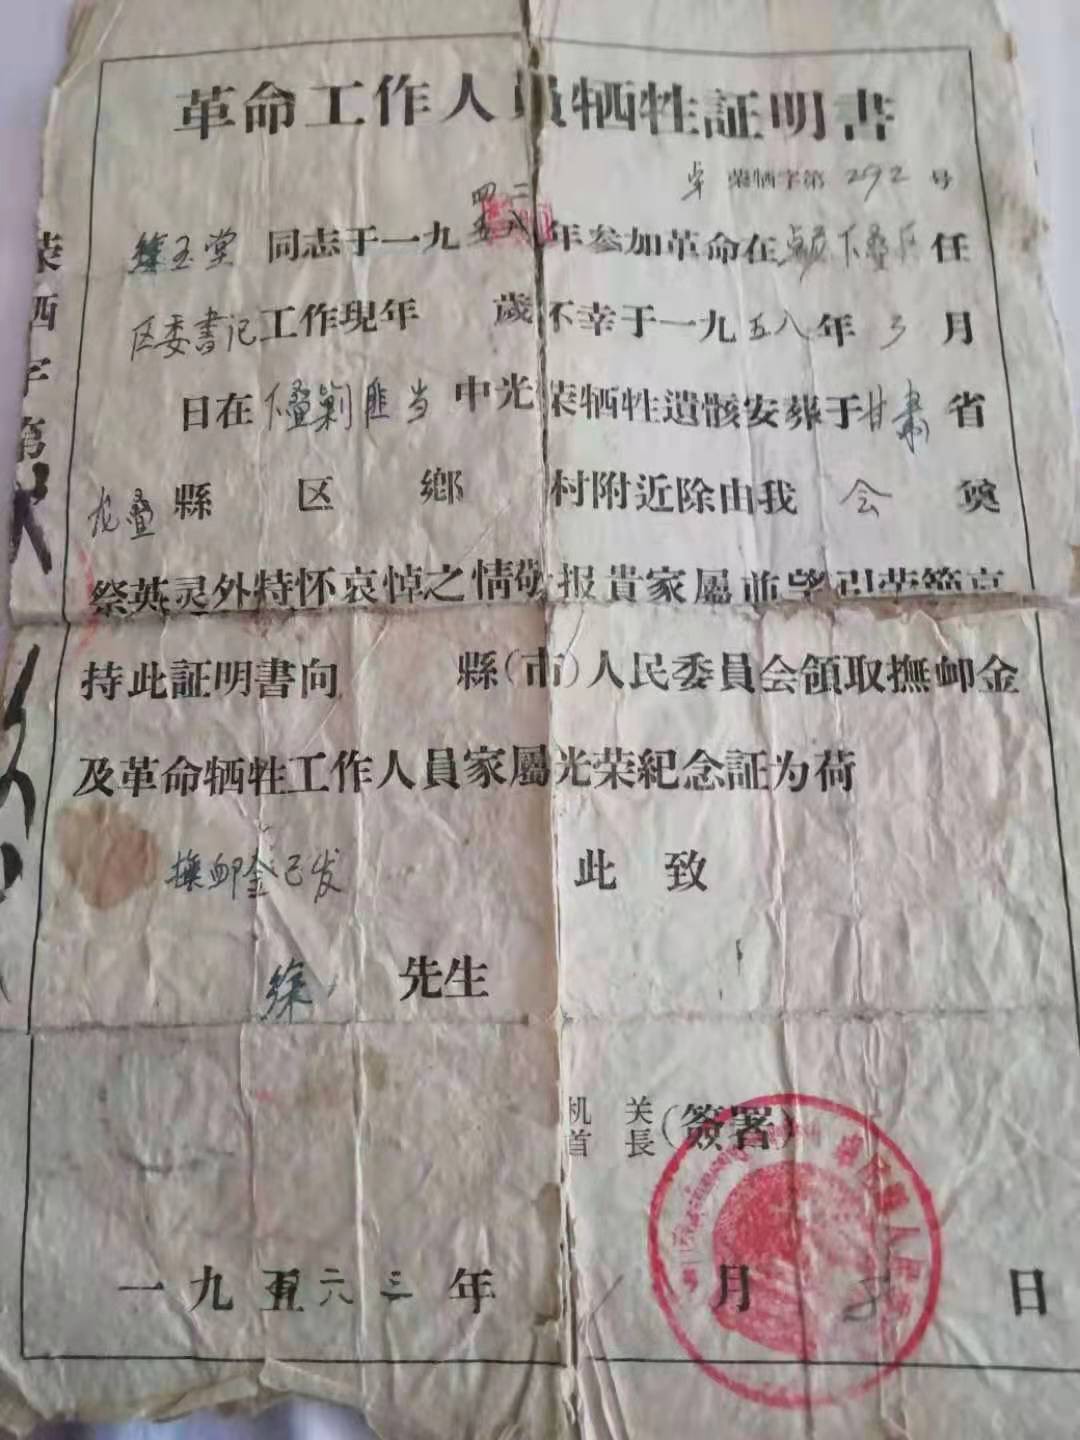 革命工作人員牺牲証明書
卓 荣牺字第 292 号
四二
徐玉堂 同志于一九五八年参加革命在卓尼下叠区任
区委書记工作現年 歲不幸于一九五八年 3 月
日在下叠剿匪当中光荣牺牲遺骸安葬于甘肃省
龙叠縣 区 鄉 村附近除由我 会 奠
祭英灵外特怀哀悼之情敬报貴家屬並望引荣節哀
持此証明書向 縣(市)人民委員会領取撫卹金
及革命牺牲工作人員家屬光荣紀念証为荷
撫卹金已发 此 致
徐 先生
机 关
首 長
(簽署)
一九五六三年 1 月 日
荣牺字第